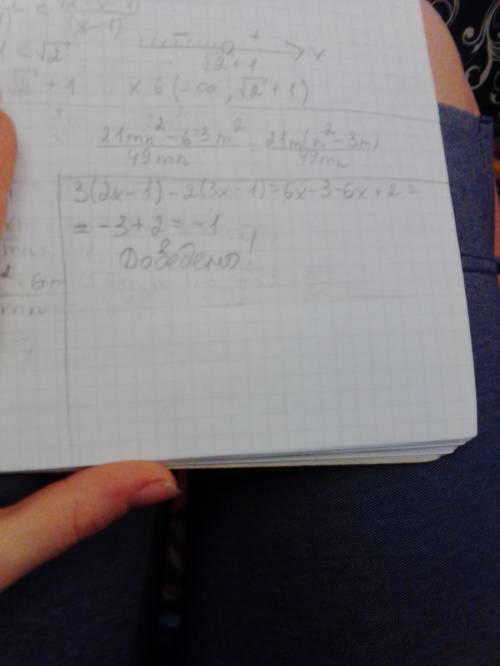 < √2
√2 + 1
− +
√2 + 1 x
x ∈ (−∞; √2 + 1)
21mn² − 63m² / 49mn = 21m(n² − 3m) / 49mn
3(2x−1) − 2(3x−1) = 6x−3−6x+2 =
= −3+2 = −1
Доведено!